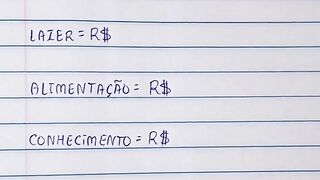 LAZER = R$
ALIMENTAÇÃO = R$
CONHECIMENTO = R$